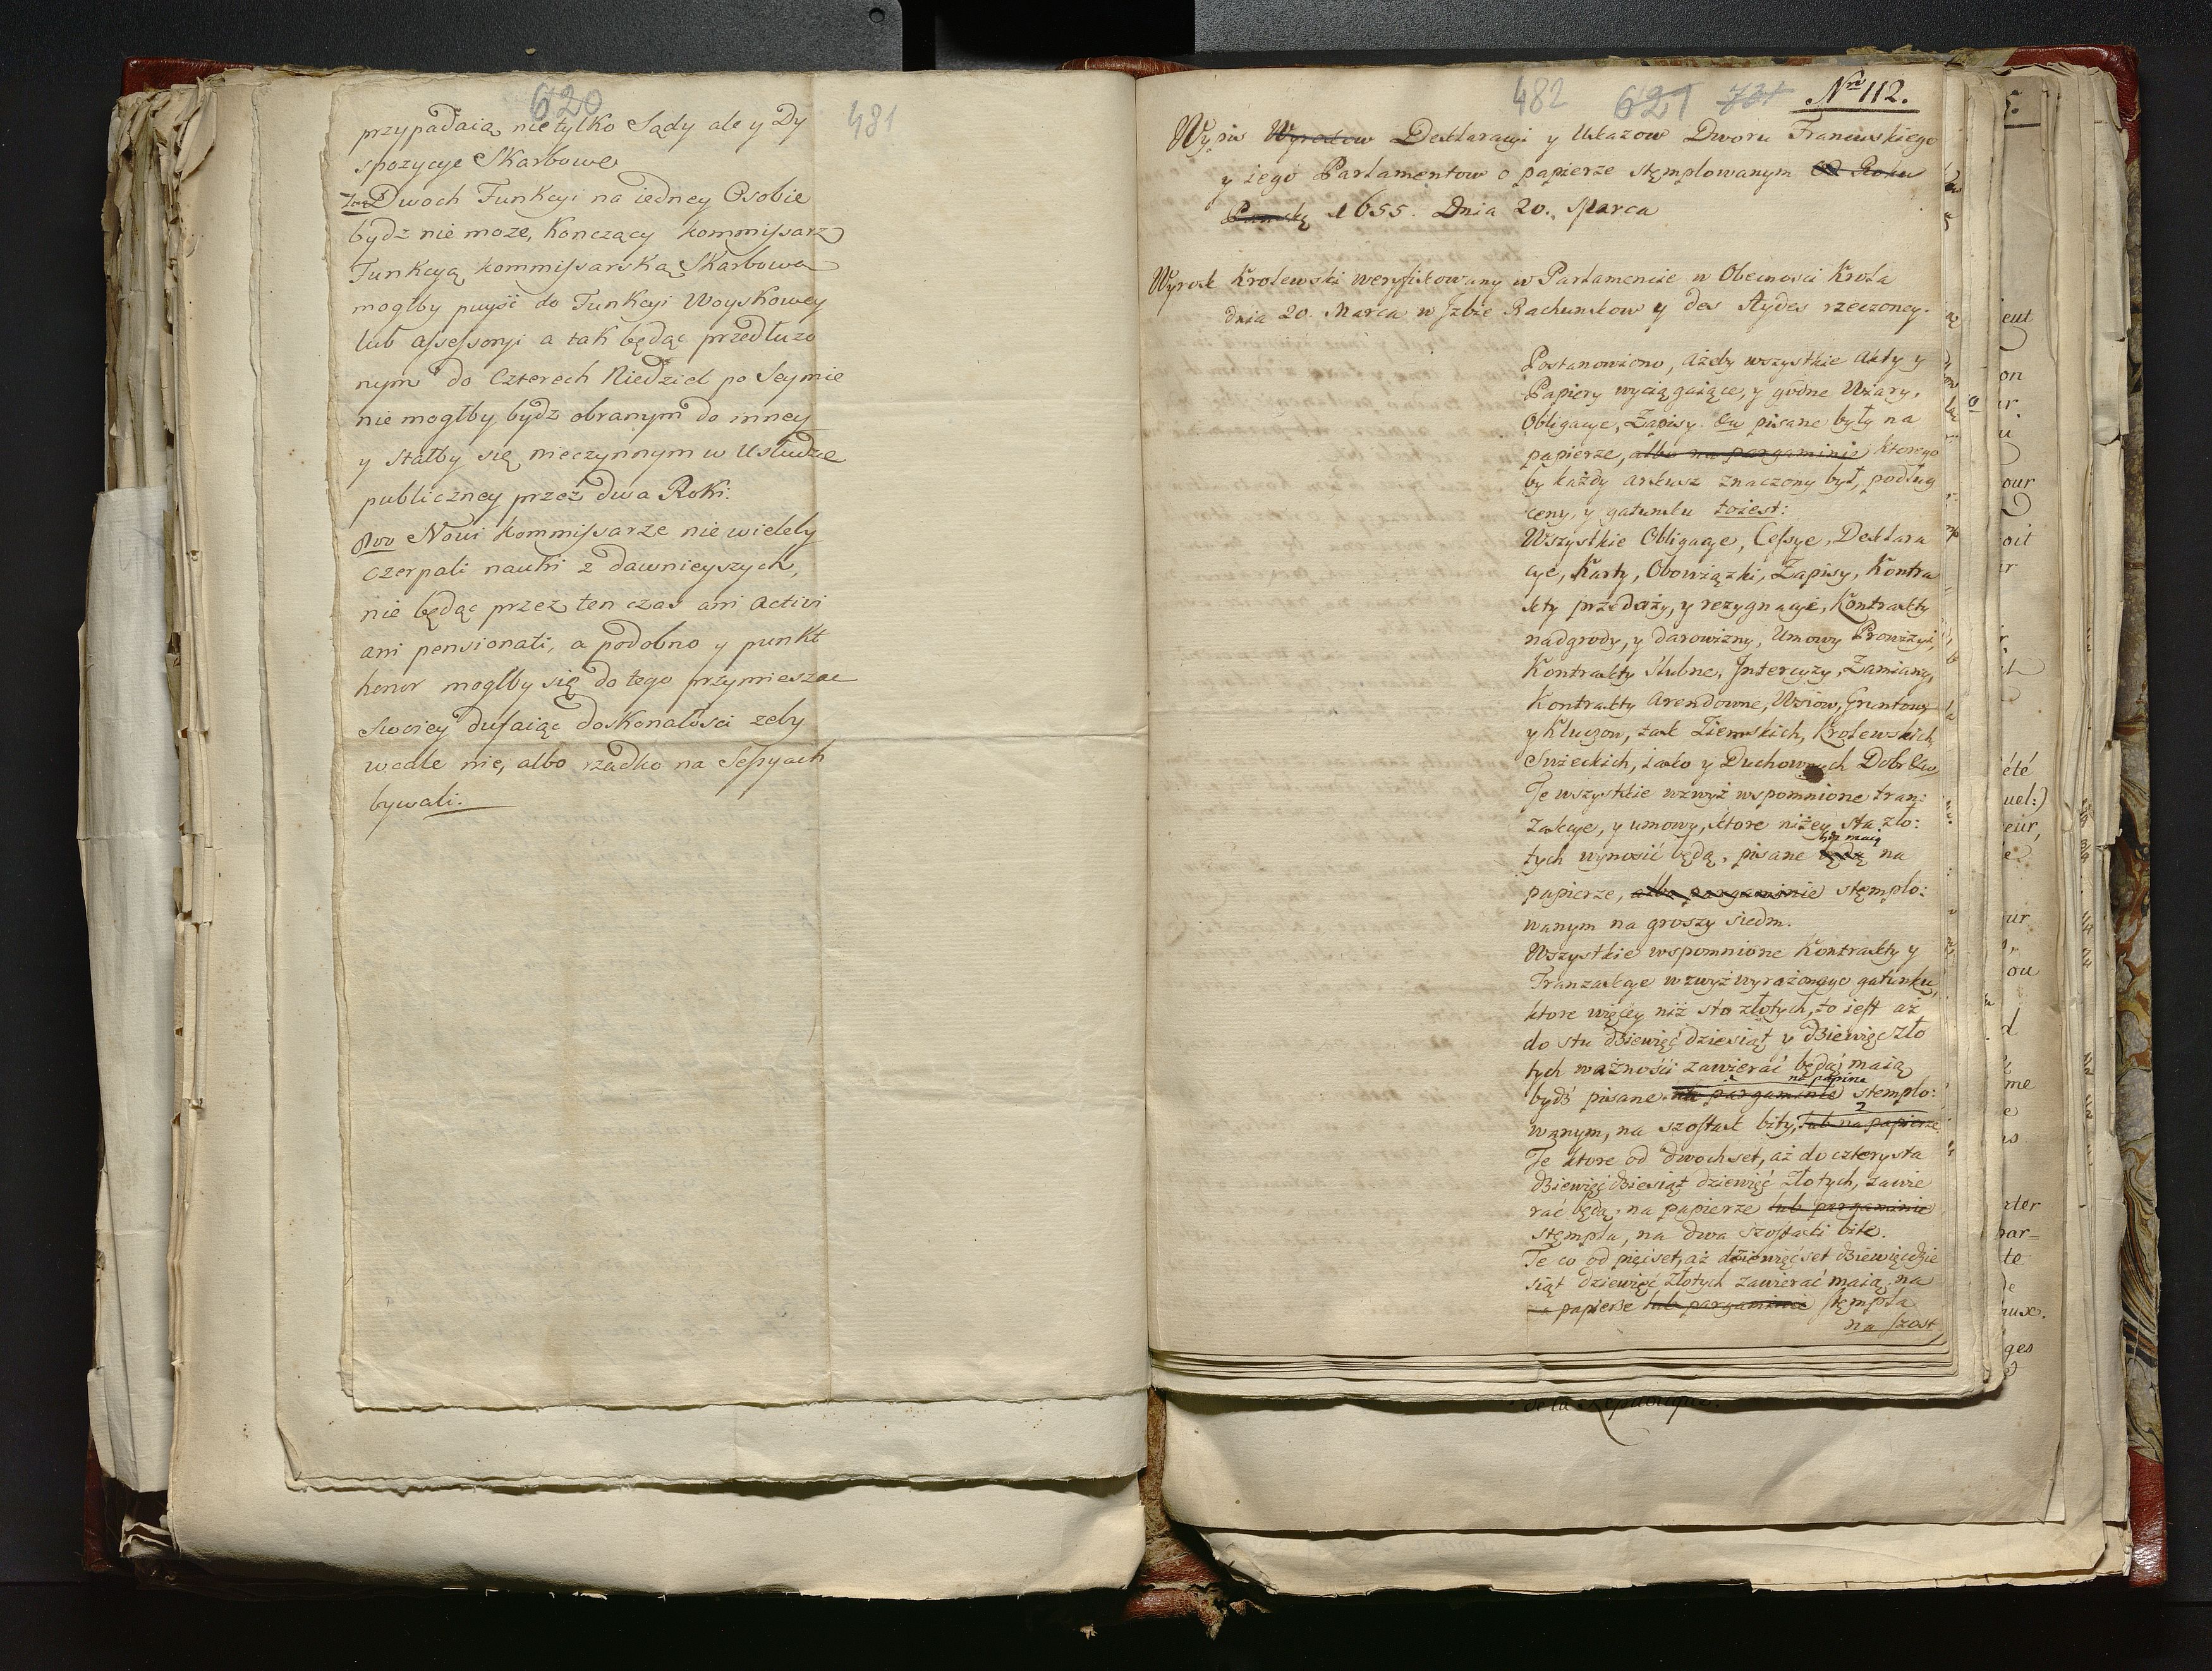 620
481
przypadaią nie tylko Sądy ale y Dy
spozycye Skarbowe
Dwoch Funkcyi na iedney Osobie
bydz nie moze, Konczący Kommissarz
Funkcyą Kommissarską Skarbową
mogłby puyść do Funkcyi Woyskowey
lub assessoryi a tak będąc przedłuzo
nym do Czterech Niedziel po Seymie
nie mogłby bydz obranym do inney
y stałby się nieczynnym w Usłudze
publiczney przez dwa Roki.
8vo Nowi Kommissarze nie wieleby
czerpali nauki z dawnieyszych,
nie będąc przez ten czas ani activi
ani pensionati, a podobno y punkt
honor mogłby się do tego przymieszac
swoiey dufaiąc doskonałosci zeby
wcale nie, albo rzadko na Sessyach
bywali.
482 621 731 Nro 112.
Wypis Wyrokow Deklaracyi y Ukazow Dworu Francuskiego
y iego Parlamentow o papierze stęmplowanym od Roku
1655. Dnia 20. Marca
Wyrok Krolewski weryfikowany w Parlamencie w Obecnosci Krola
dnia 20. Marca w Jzbie Rachunkow y des Aydes rzeczoney.
Postanowiono, ażeby wszystkie Akty y
Papiery wyciągaiące, y godne Wiary,
Obligacye, Zapisy &a pisane były na
papierze, albo na pargaminie ktorego
by każdy arkusz znaczony był, podług
ceny, y gatunku tożest:
Wszystkie Obligacye, Cessye, Deklara
cye, Karty, Obowiązki, Zapisy, Kontra
kty przedaży, y rezygnacye, Kontrakty
nadgrody, y darowizny, Umowy Prowizyi,
Kontrakty slubne, Jntercyzy, Zamiany,
Kontrakty Arendowne, Wsiow, Gruntow
y Kluczow, tak Ziemskich, Krolewskich,
Sużeckich, iako y Duchownych Dobr &a
Te wszystkie wzwyż wspomnione tran:
zakcye, y umowy, ktore niżey sta zło:
bydz maią
tych wynosić będą, pisane będą na
papierze, albo pargaminie stęmplo:
wanym na groszy siedm.
Wszystkie wspomnione Kontrakty y
Tranzakcye wzwyż wyrażonego gatunku,
ktore więcey niż sto złotych, to iest aż
do stu dziewięć dziesiąt y dziewięc zło
tych ważności zawierać będą; maią
na papirze
bydź pisane na pargaminie stemplo:
2
wanym, na szostak bity, lub na papierze
Te ktore od dwochset, aż do czterysta
dziewięć dziesiąt dziewięć złotych, zawie
rać będą; na papierze lub pargaminie
stęmpla, na dwa szostaki bite.
Te co od pięciset, aż dziewięćset dziewięcdzie
siąt dziewięć złotych zawierać maią; na
papierze lub pargaminie stęmpla
na szost